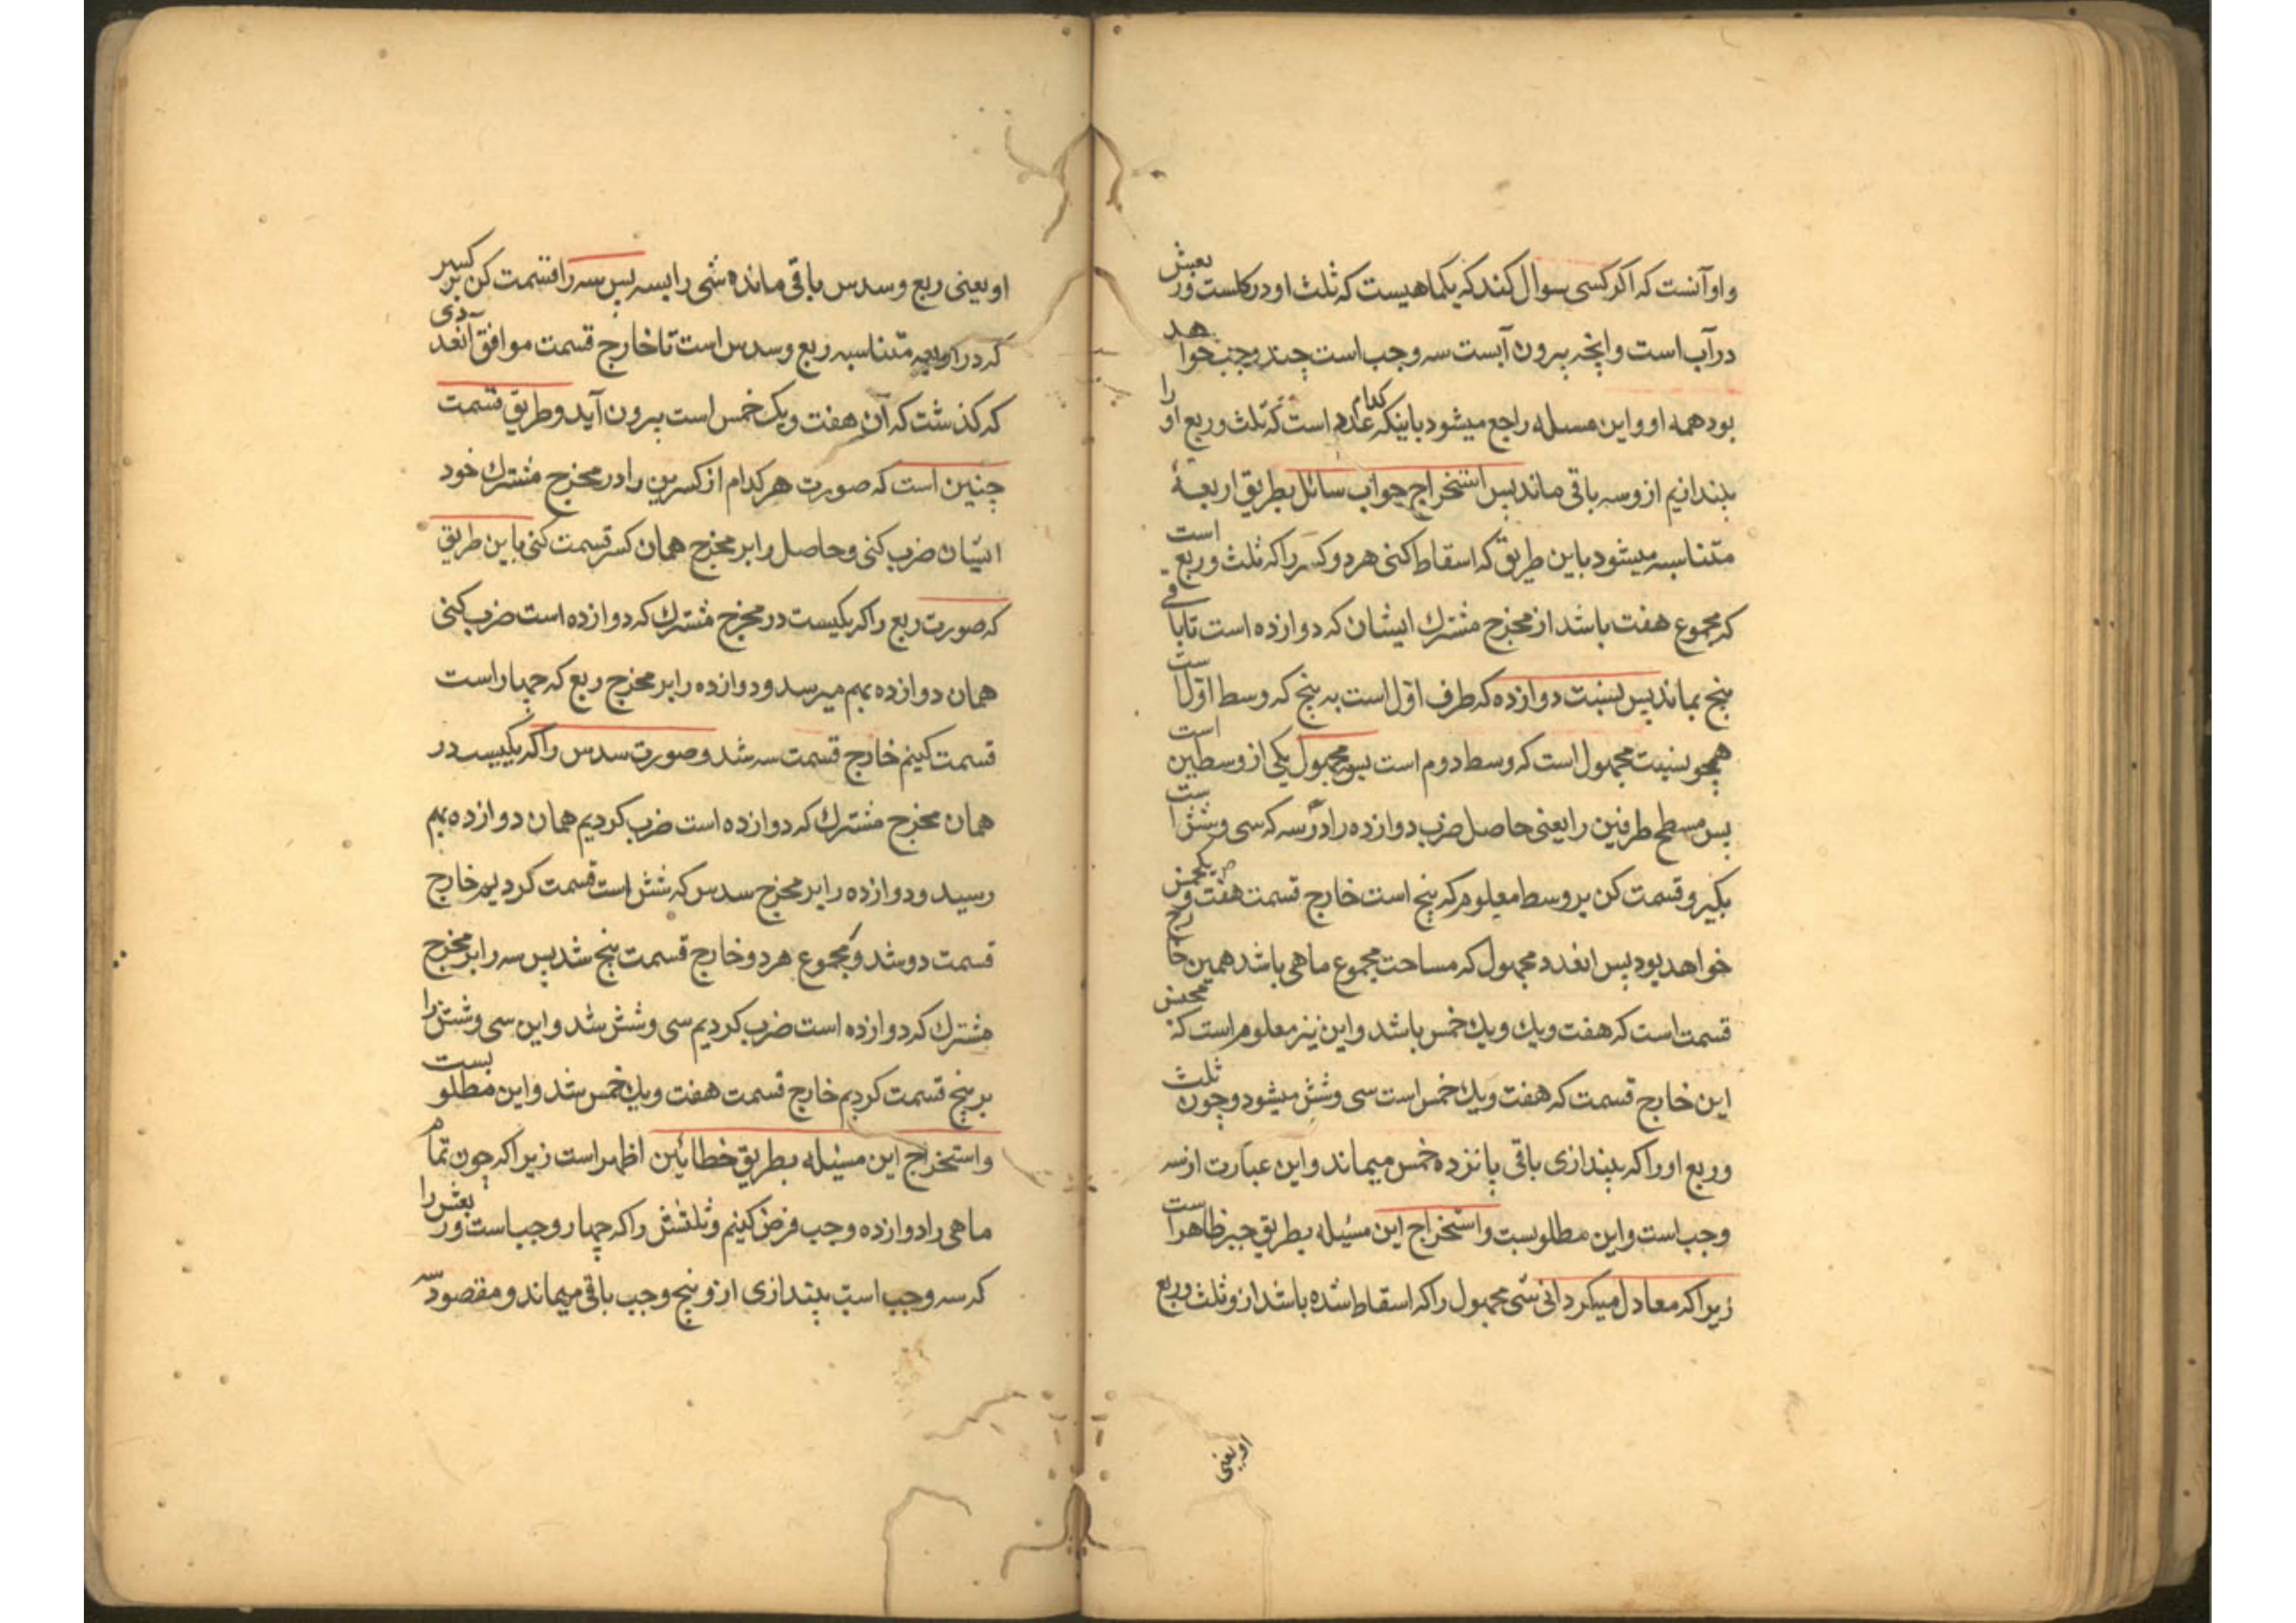 واو آنست که اکر کسی سوال کند که یکماهیست که ثلث او در کلست و ربعش
در آب است و انچه بیرون آبست سه وجب است چند وجب خواهد
بود همه او و این مسئله راجع میشود باینکه کدام عدد است که ثلث و ربع او را
بیندازیم ازو سه باقی ماند پس استخراج جواب سائل بطریق اربعهٔ
متناسبه میشود باین طریق که اسقاط کنی هر دو کسر را که ثلث و ربع است
که مجموع هفت باشد از مخرج مشترک ایشان که دوازده است تا باقی
پنج بماند پس نسبت دوازده که طرف اوّل است به پنج که وسط اوّل است
همچو نسبت مجهول است که وسط دوم است پس مجهول یکی از وسطین است
پس مسطح طرفین را یعنی حاصل ضرب دوازده را در سه که سی و شش است
بکیر و قسمت کن بر وسط معلوم که پنج است خارج قسمت هفت و یکخمس
خواهد بود پس انعدد مجهول که مساحت مجموع ماهی باشد همین خارج
قسمت است که هفت ویك ویك خمس باشد و این نیز معلوم است که مخمس
این خارج قسمت که هفت ویك خمس است سی و شش میشود و چون ثلث
و ربع او را که بیندازی باقی پانزده خمس میماند و این عبارت از سه
وجب است و این مطلوبست و استخراج این مسئیله بطریق جبر ظاهر است
زیرا که معادل میکردانی شی مجهول را که اسقاط شده باشد ازو ثلث و ربع
او یعنی
او یعنی ربع و سدس باقی مانده شی را بسه پس سه را قسمت کن بر کسر
که در اربعه متناسبه ربع و سدس است تا خارج قسمت موافق انعددی
که کذشت که آن هفت و یک خمس است بیرون آید و طریق قسمت
چنین است که صورت هر کدام از کسرین را در مخرج مشترك خود
ایشان ضرب کنی و حاصل را بر مخرج همان کسر قسمت کنی باین طریق
که صورت ربع را که یکیست در مخرج مشترك که دوازده است ضرب کنی
همان دوازده بهم میرسد و دوازده را بر مخرج ربع که چهار است
قسمت کنیم خارج قسمت سه شد و صورت سدس را که یکیست در
همان مخرج مشترك که دوازده است ضرب کردیم همان دوازده بهم
رسید و دوازده را بر مخرج سدس که شش است قسمت کردیم خارج
قسمت دو شد و مجموع هر دو خارج قسمت پنج شد پس سه را بر مخرج
مشترك که دوازده است ضرب کردیم سی و شش شد و این سی و شش را
بر پنج قسمت کردیم خارج قسمت هفت ویك خمس شد و این مطلوبست
و استخراج این مسئیله بطریق خطائین اظهر است زیرا که چون تمام
ماهی را دوازده وجب فرض کنیم و ثلثش را که چهار وجب است و ربعش را
که سه وجب است بیندازی ازو پنج وجب باقی میماند و مقصود سه